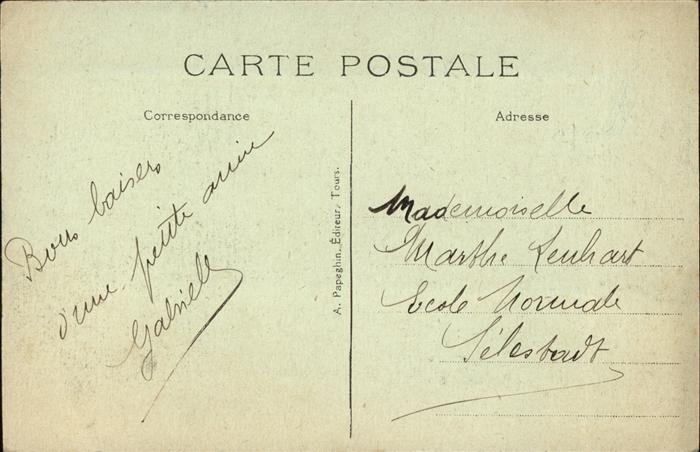 CARTE POSTALE
Correspondance
Adresse
Bons baisers
d'une petite amie
Gabrielle
A. Papeghin, Éditeur, Tours.
Mademoiselle
Marthe Lenhart
Ecole Normale
Sélestadt